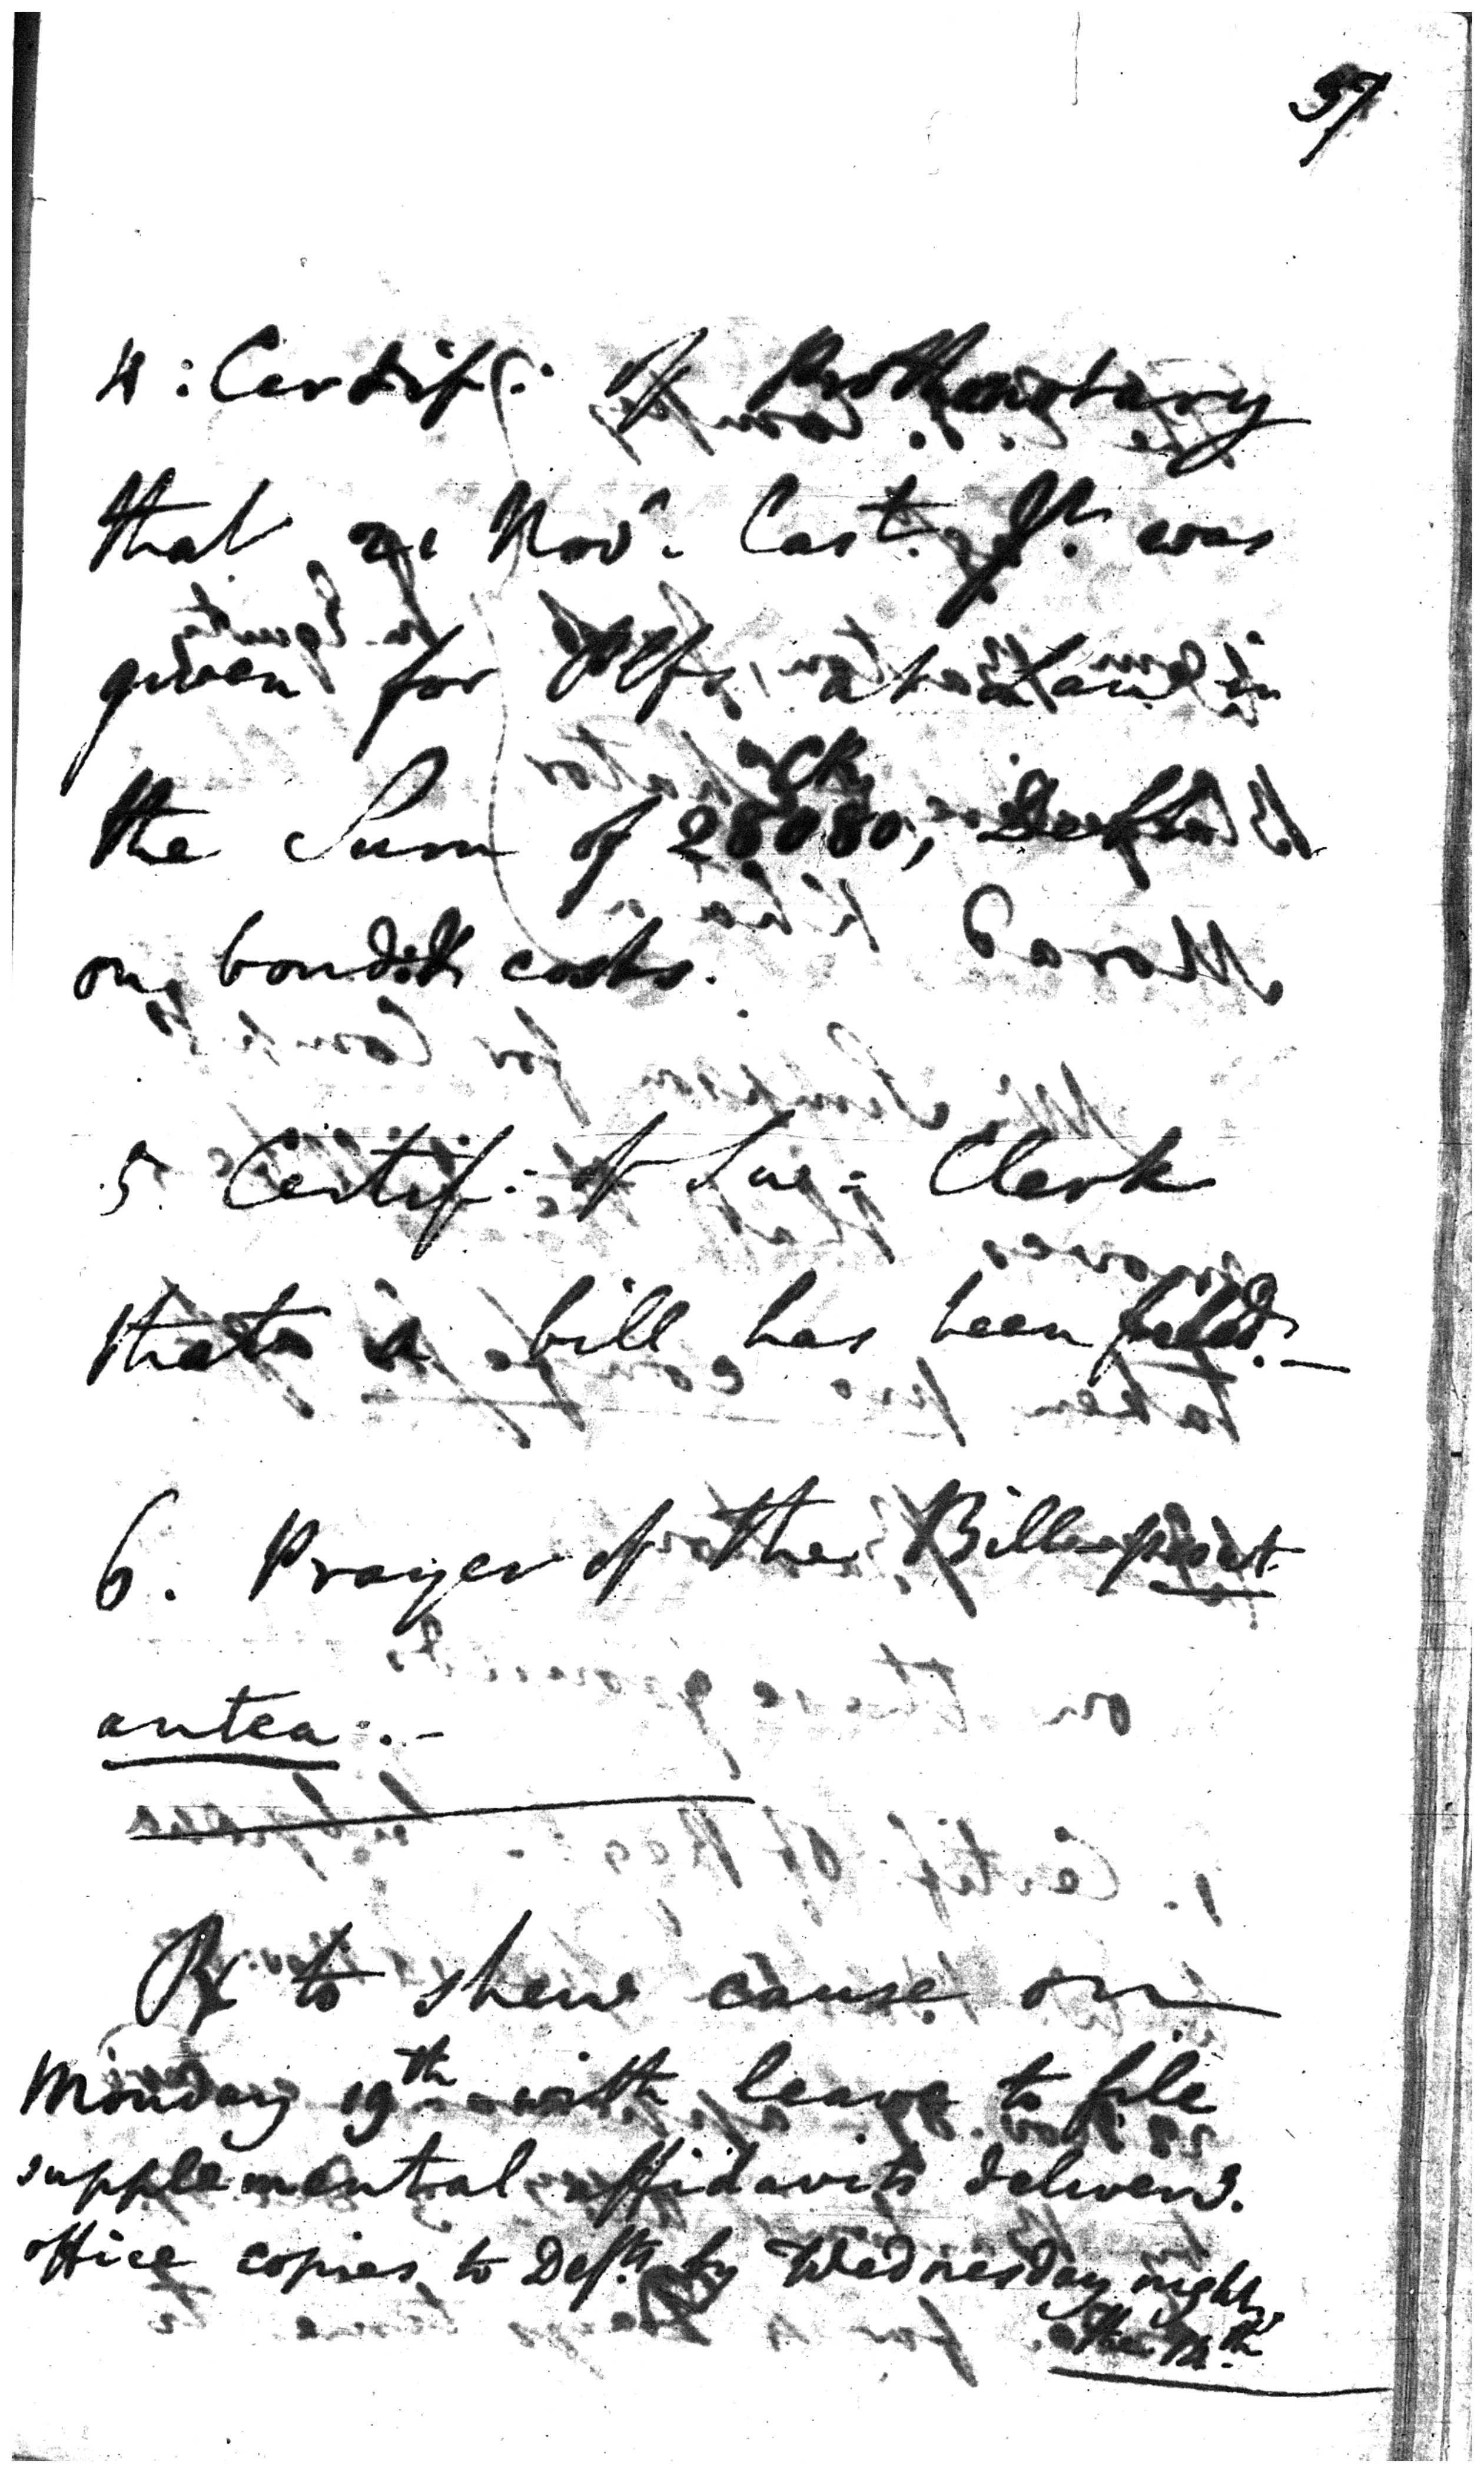 57
4: Certif: of Prothonotary
that 21 Nov.r last Jt. was
given for Plfs, at Law in
the Sum of CR 28080, Debt
on bond & costs.
5. Certif: of Swe: Clerk
that a bill has been filed.—
6. Prayer of the Bill
antea:—
to shew cause on
Monday 19th with leave to file
supplemental affidavits deliver.g
office copies to Defts. by Wednesday night
the 14th